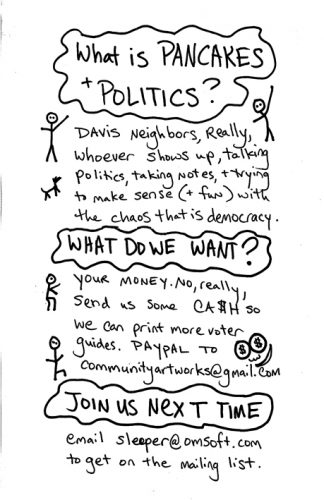 What is PANCAKES
+ POLITICS?
DAVIS Neighbors, Really,
whoever shows up, talking
politics, taking notes, + trying
to make sense (+ fun) with
the chaos that is democracy.
WHAT DO WE WANT?
YOUR MONEY. NO, really,
send us some CA$H so
we can print more voter
guides. PAYPAL TO
communityartworks@gmail.com
JOIN US NEXT TIME
email sleeper@omsoft.com
to get on the mailing list.